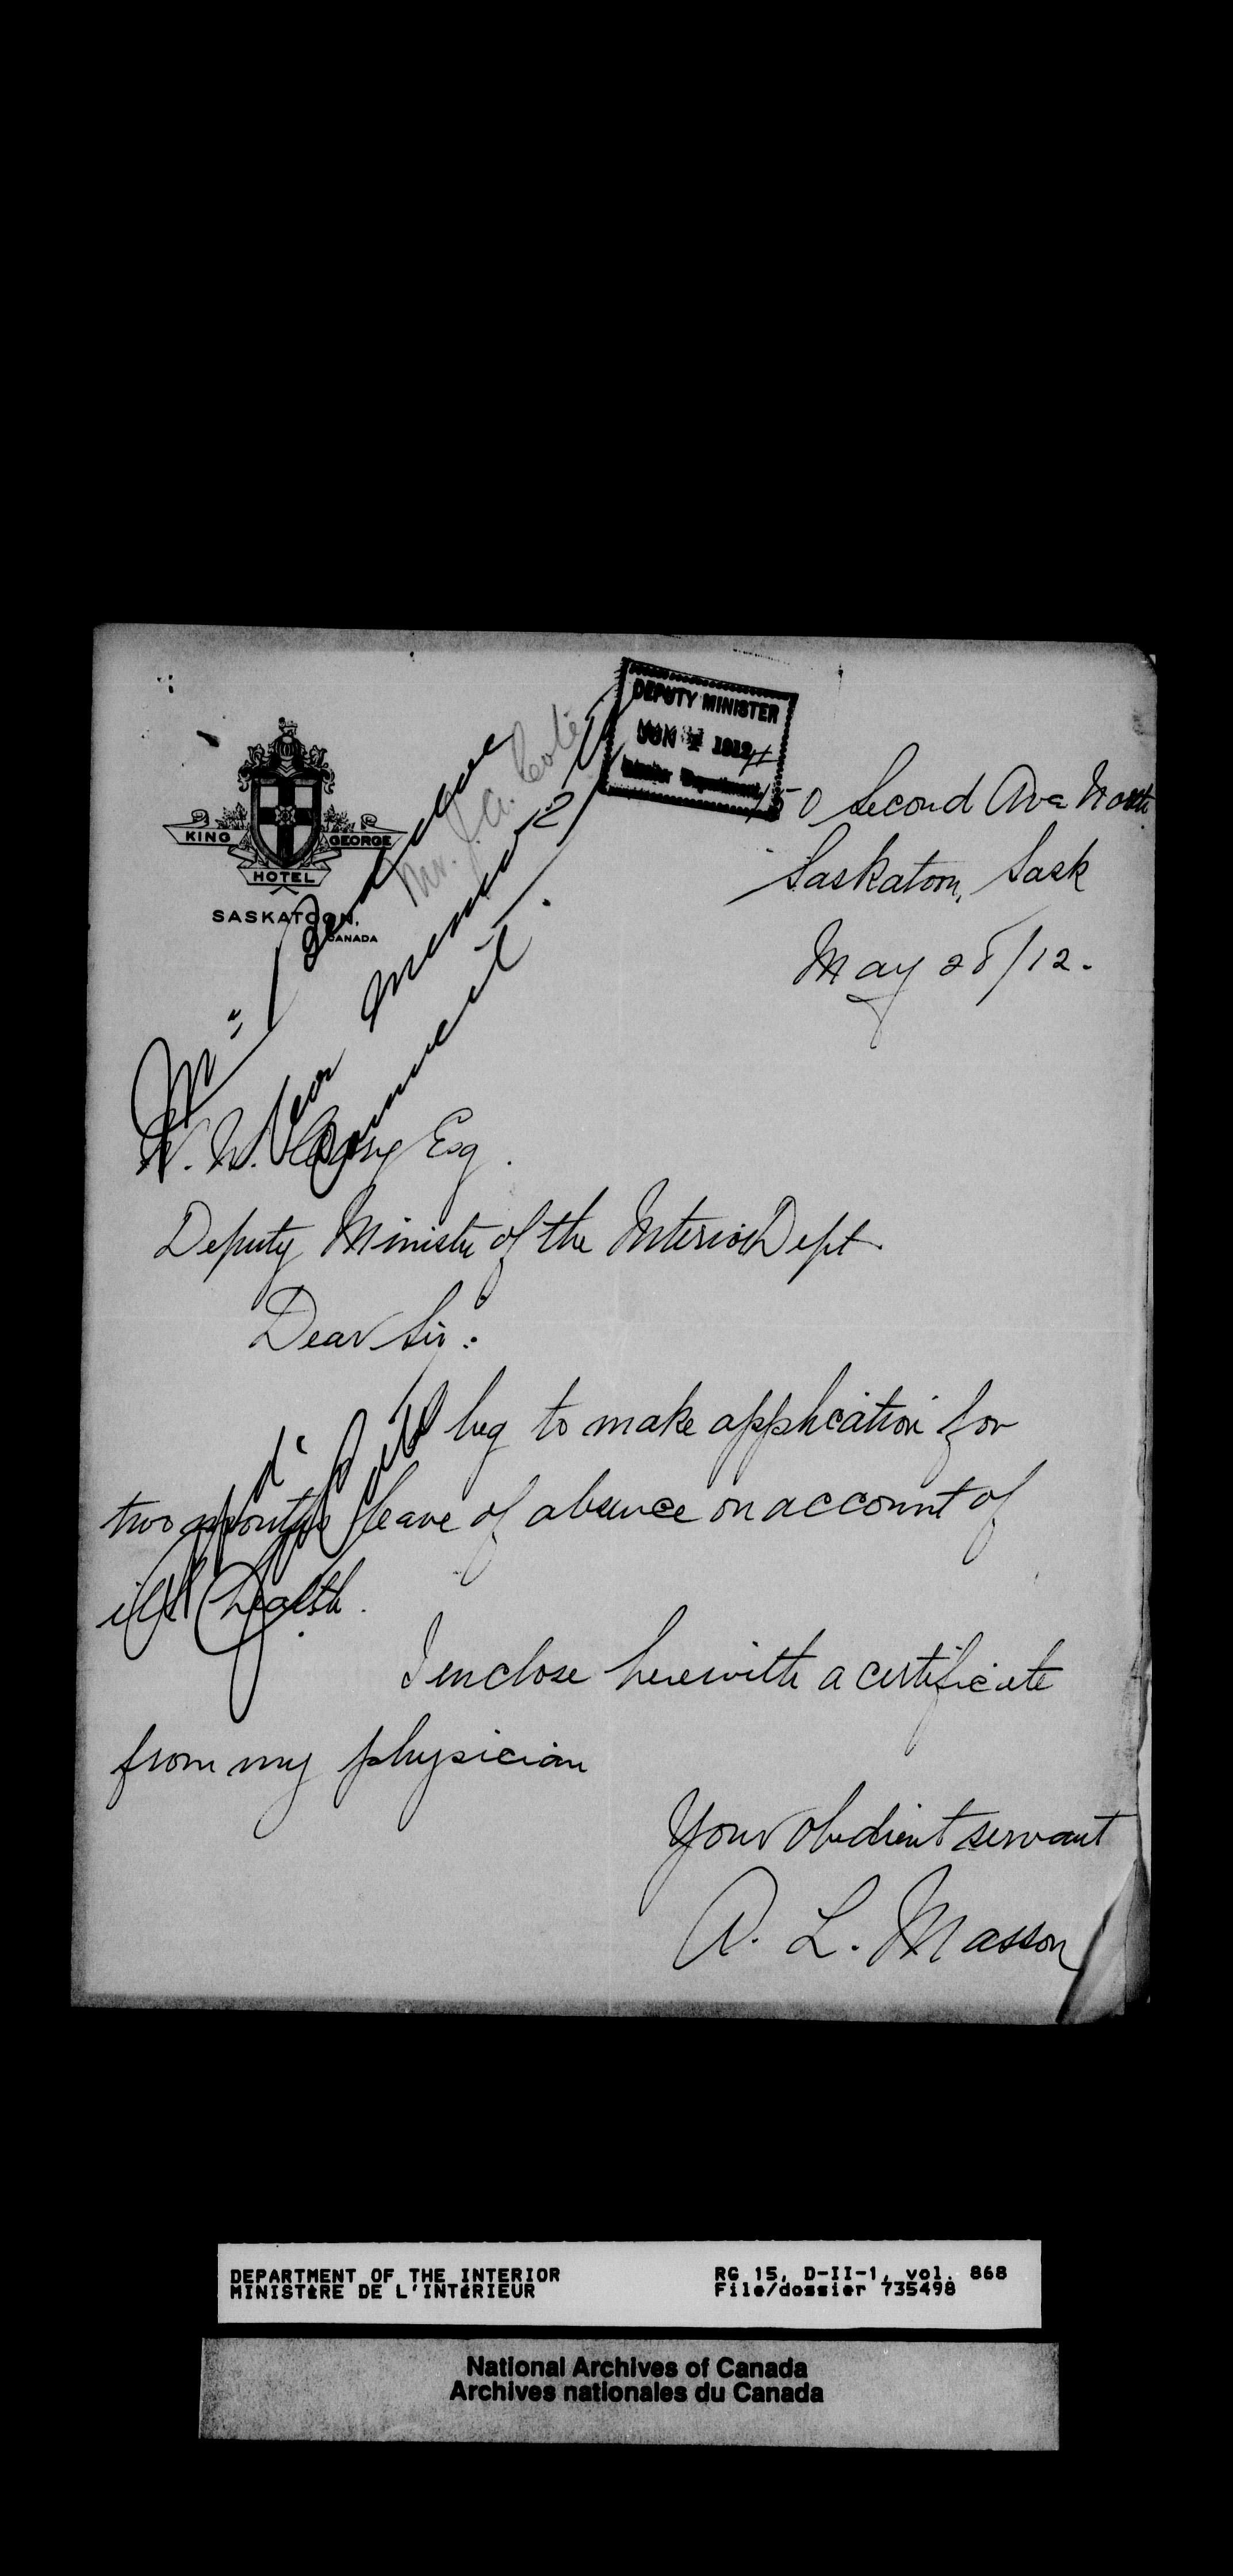 KING GEORGE
HOTEL
SASKATOON,
CANADA
DEPUTY MINISTER
JUN 1912
Interior Department
Mr. J. A. Coté
150 Second Ave North
Saskatoon, Sask
May 28/12.
W. W. Cory Esq.
Deputy Minister of the Interior Dept.
Dear Sir:
I beg to make application for
two months leave of absence on account of
ill health.
I enclose herewith a certificate
from my physician
Your obedient servant
A. L. Masson
DEPARTMENT OF THE INTERIOR
MINISTÈRE DE L'INTÉRIEUR
RG 15, D-II-1, vol. 868
File/dossier 735498
National Archives of Canada
Archives nationales du Canada